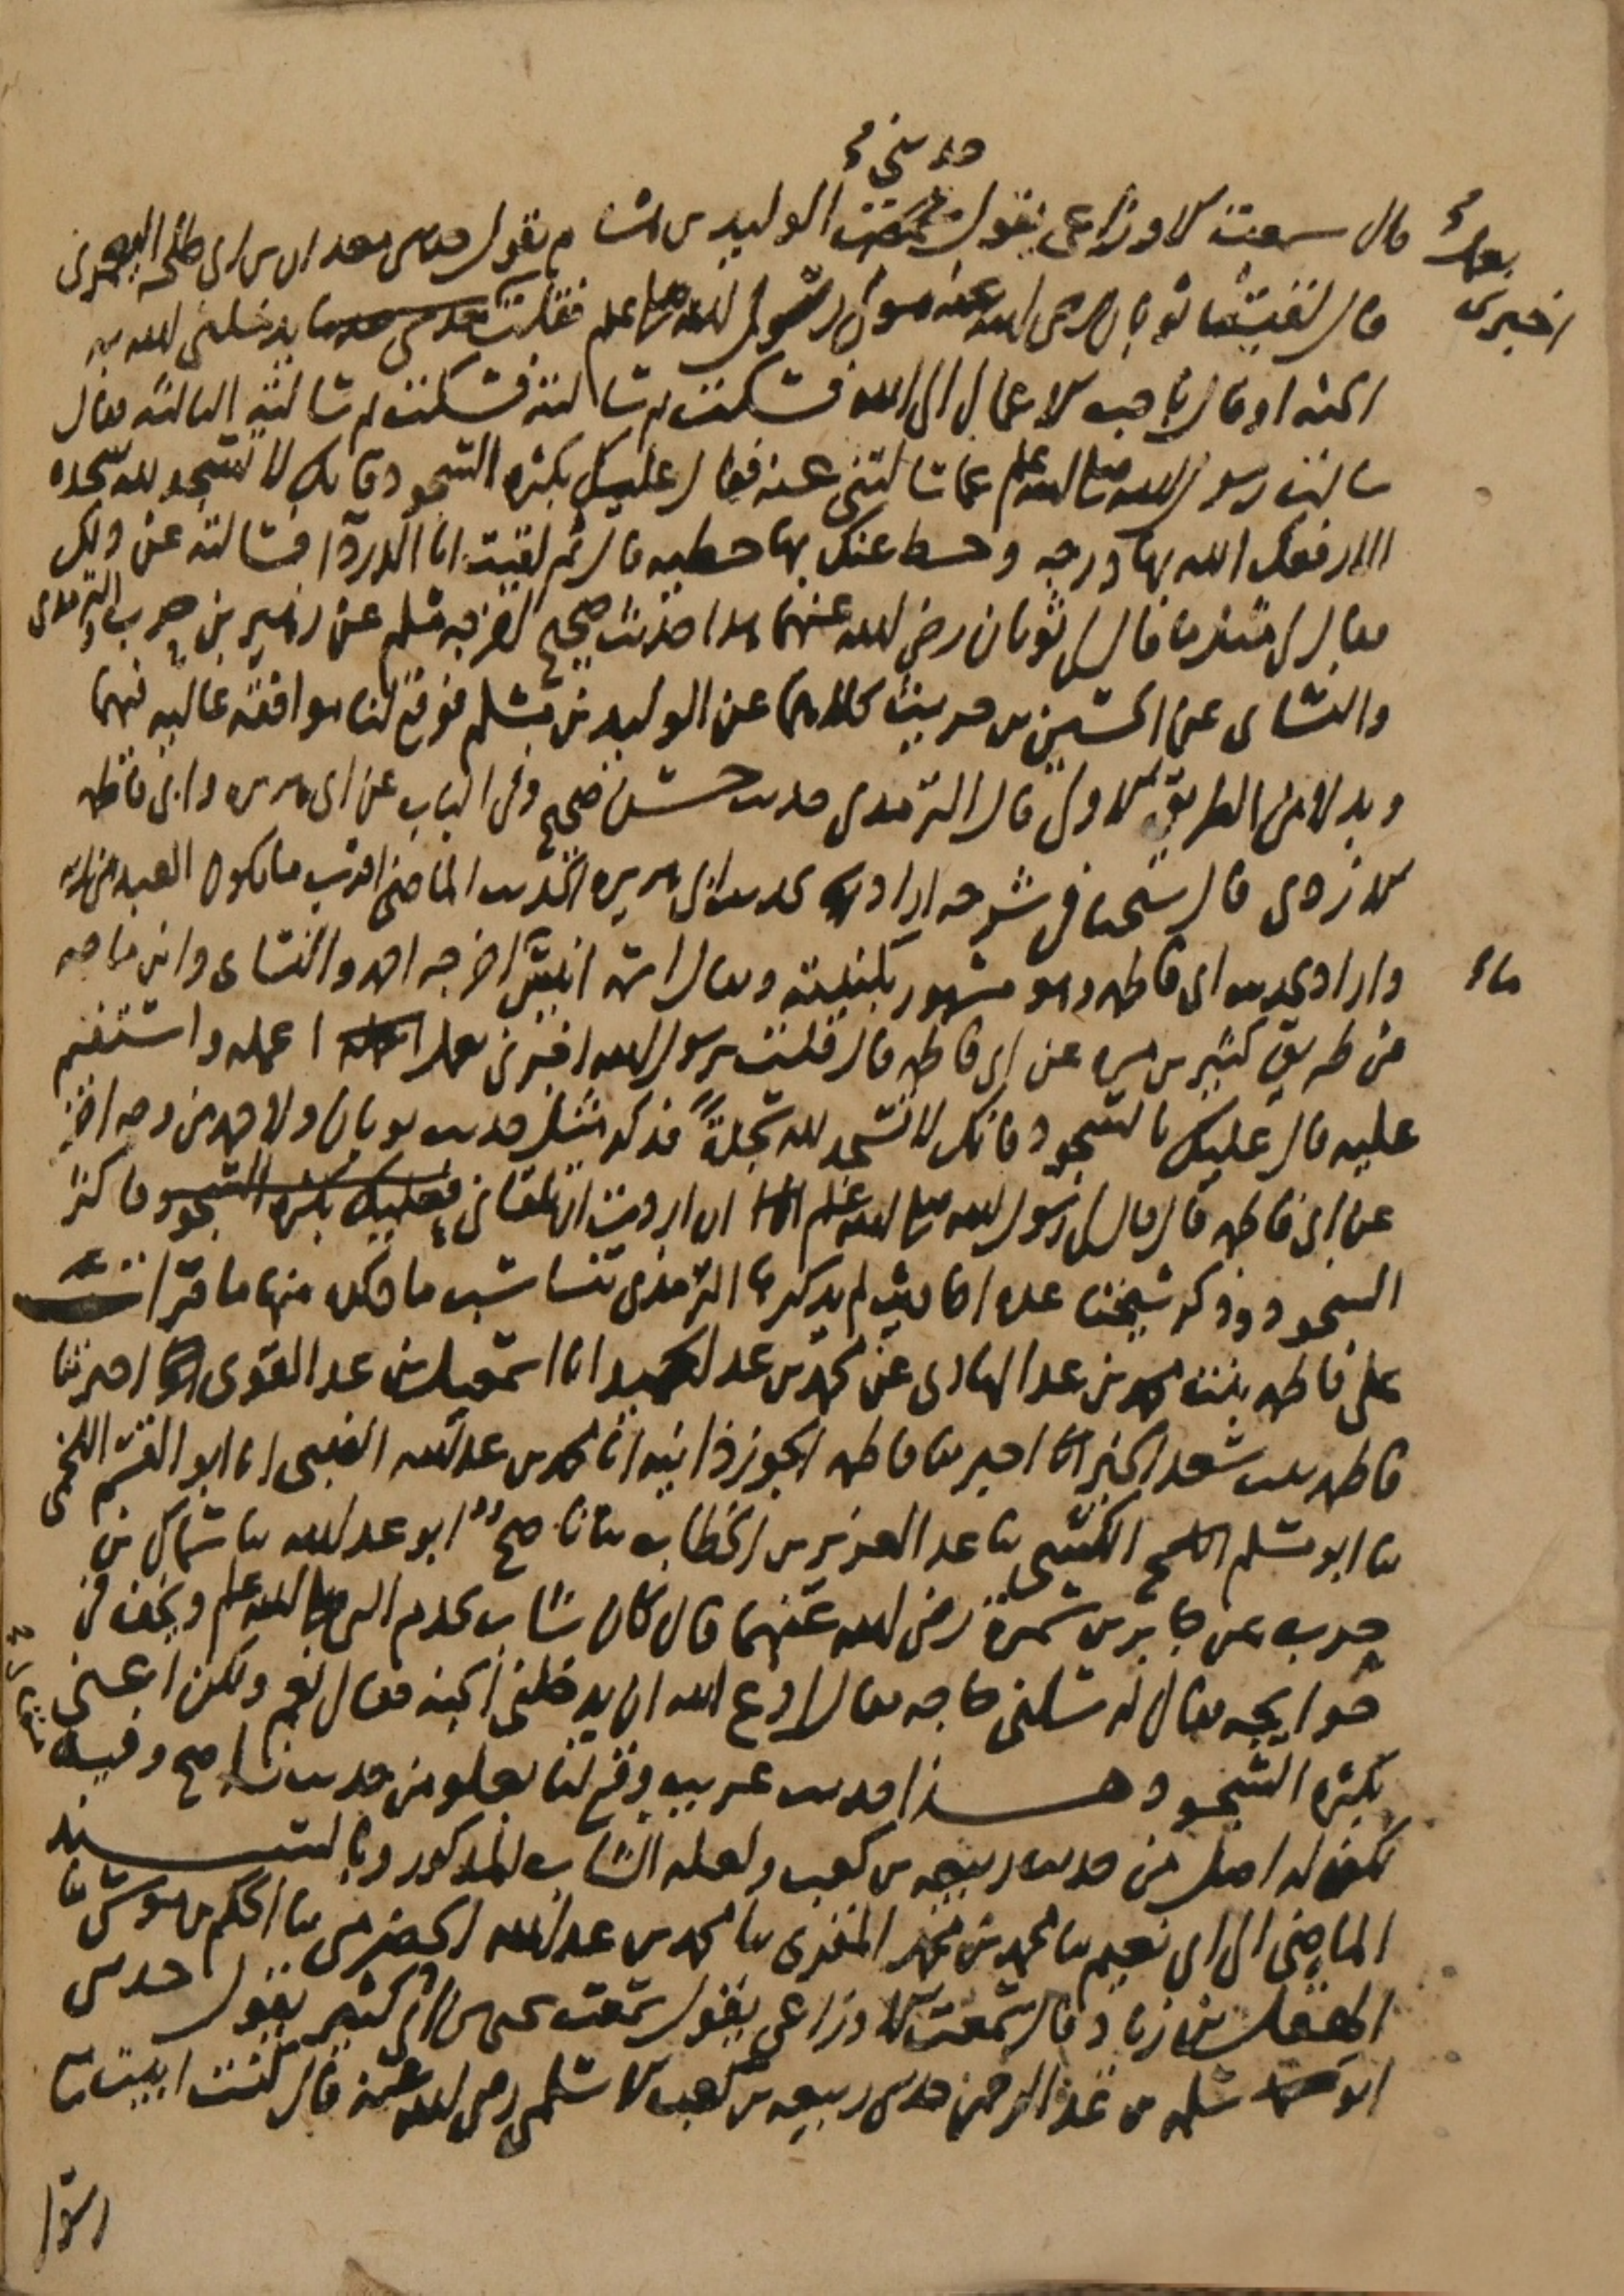 حدثني
قال سمعت الاوزاعي يقول الوليد بن هشام يقول حدثني معدان بن ابي طلحة اليعمري
بعمل
اخبرني
قال لقيت ثوبان رضي الله عنه مولى رسول الله صلى الله عليه وسلم فقلت يدخلني الله به
الجنه او قال باحب الاعمال الى الله فسكت ثم سالته فسكت ثم سالته الثالثة فقال
سالت رسول الله صلى الله عليه وسلم عما سالتني عنه فقال عليك بكثره السجود فانك لا تسجد لله سجده
الا رفعك الله بها درجه وحط عنك بها خطيه قال ثم لقيت ابا الدردا فسالته عن ذلك
فقال لي مثل ما قال لي ثوبان رضي الله عنهما هذا حديث صحيح اخرجه مسلم عن زهير بن حرب والترمذي
والنساي عن الحسين بن حريث كلاهما عن الوليد بن مسلم فوقع لنا موافقة عاليه فيهما
وبدلا من الطريق الاولى قال الترمذي حديث حسن صحيح وفي الباب عن ابي هريره وابي فاطمه
الازدي قال شيخنا في شرحه اراد بحديث ابي هريره الحديث الماضي اقرب ما يكون العبد من ربه
واراد بحديث ابي فاطمه وهو مشهور بكنيته ويقال اسمه انيس اخرجه احمد والنساي وابن ماجه
من طريق كثير بن مره عن ابي فاطمه قال قلت يرسول الله اخبرني بعمل اعمله واستقيم
عليه قال عليك بالسجود فانك لا تسجد لله سجدة فذكر مثل حديث ثوبان ولاحمد من وجه اخر
عن ابي فاطمه قال قال لي رسول الله صلى الله عليه وسلم ان اردت ان تلقاني فعليك بكثره السجود فاكثر
السجود وذكر شيخنا عده احاديث لم يذكرها الترمذي تناسب ما ذكره منها ما قرات
على فاطمه بنت محمد بن عبد الهادي عن محمد بن عبد الحميد انا اسمعيل بن عبد القوي اخبرتنا
فاطمه بنت سعد الخير اخبرتنا فاطمه الجوزدانيه انا محمد بن عبد الله الضبي انا ابو القسم اللخمي
ثنا ابو مسلم الكشي ثنا عبد العزيز بن الخطاب ثنا ناصح ابو عبد الله ثنا سماك بن
حرب عن جابر بن سمرة رضي الله عنهما قال كان شاب يخدم النبي صلى الله عليه وسلم ويخف في
حوايجه فقال له سلني حاجه فقال ادع الله ان يدخلني الجنه فقال نعم ولكن اعني
بكثره السجود هذا حديث غريب وقع لنا بعلو من حديث ناصح وفيه
لكن له اصل من حديث ربيعه بن كعب ولعله الشاب المذكور وبالسند
الماضي الى ابي نعيم ثنا محمد بن محمد المقري ثنا محمد بن عبد الله الحضرمي ثنا الحكم بن موسى ثنا
الهقل بن زياد قال سمعت الاوزاعي يقول سمعت يحيى بن ابي كثير يقول حدثني
ابو سلمه بن عبد الرحمن حدثني ربيعه بن كعب الاسلمي رضي الله عنه قال كنت ابيت مع
رسول